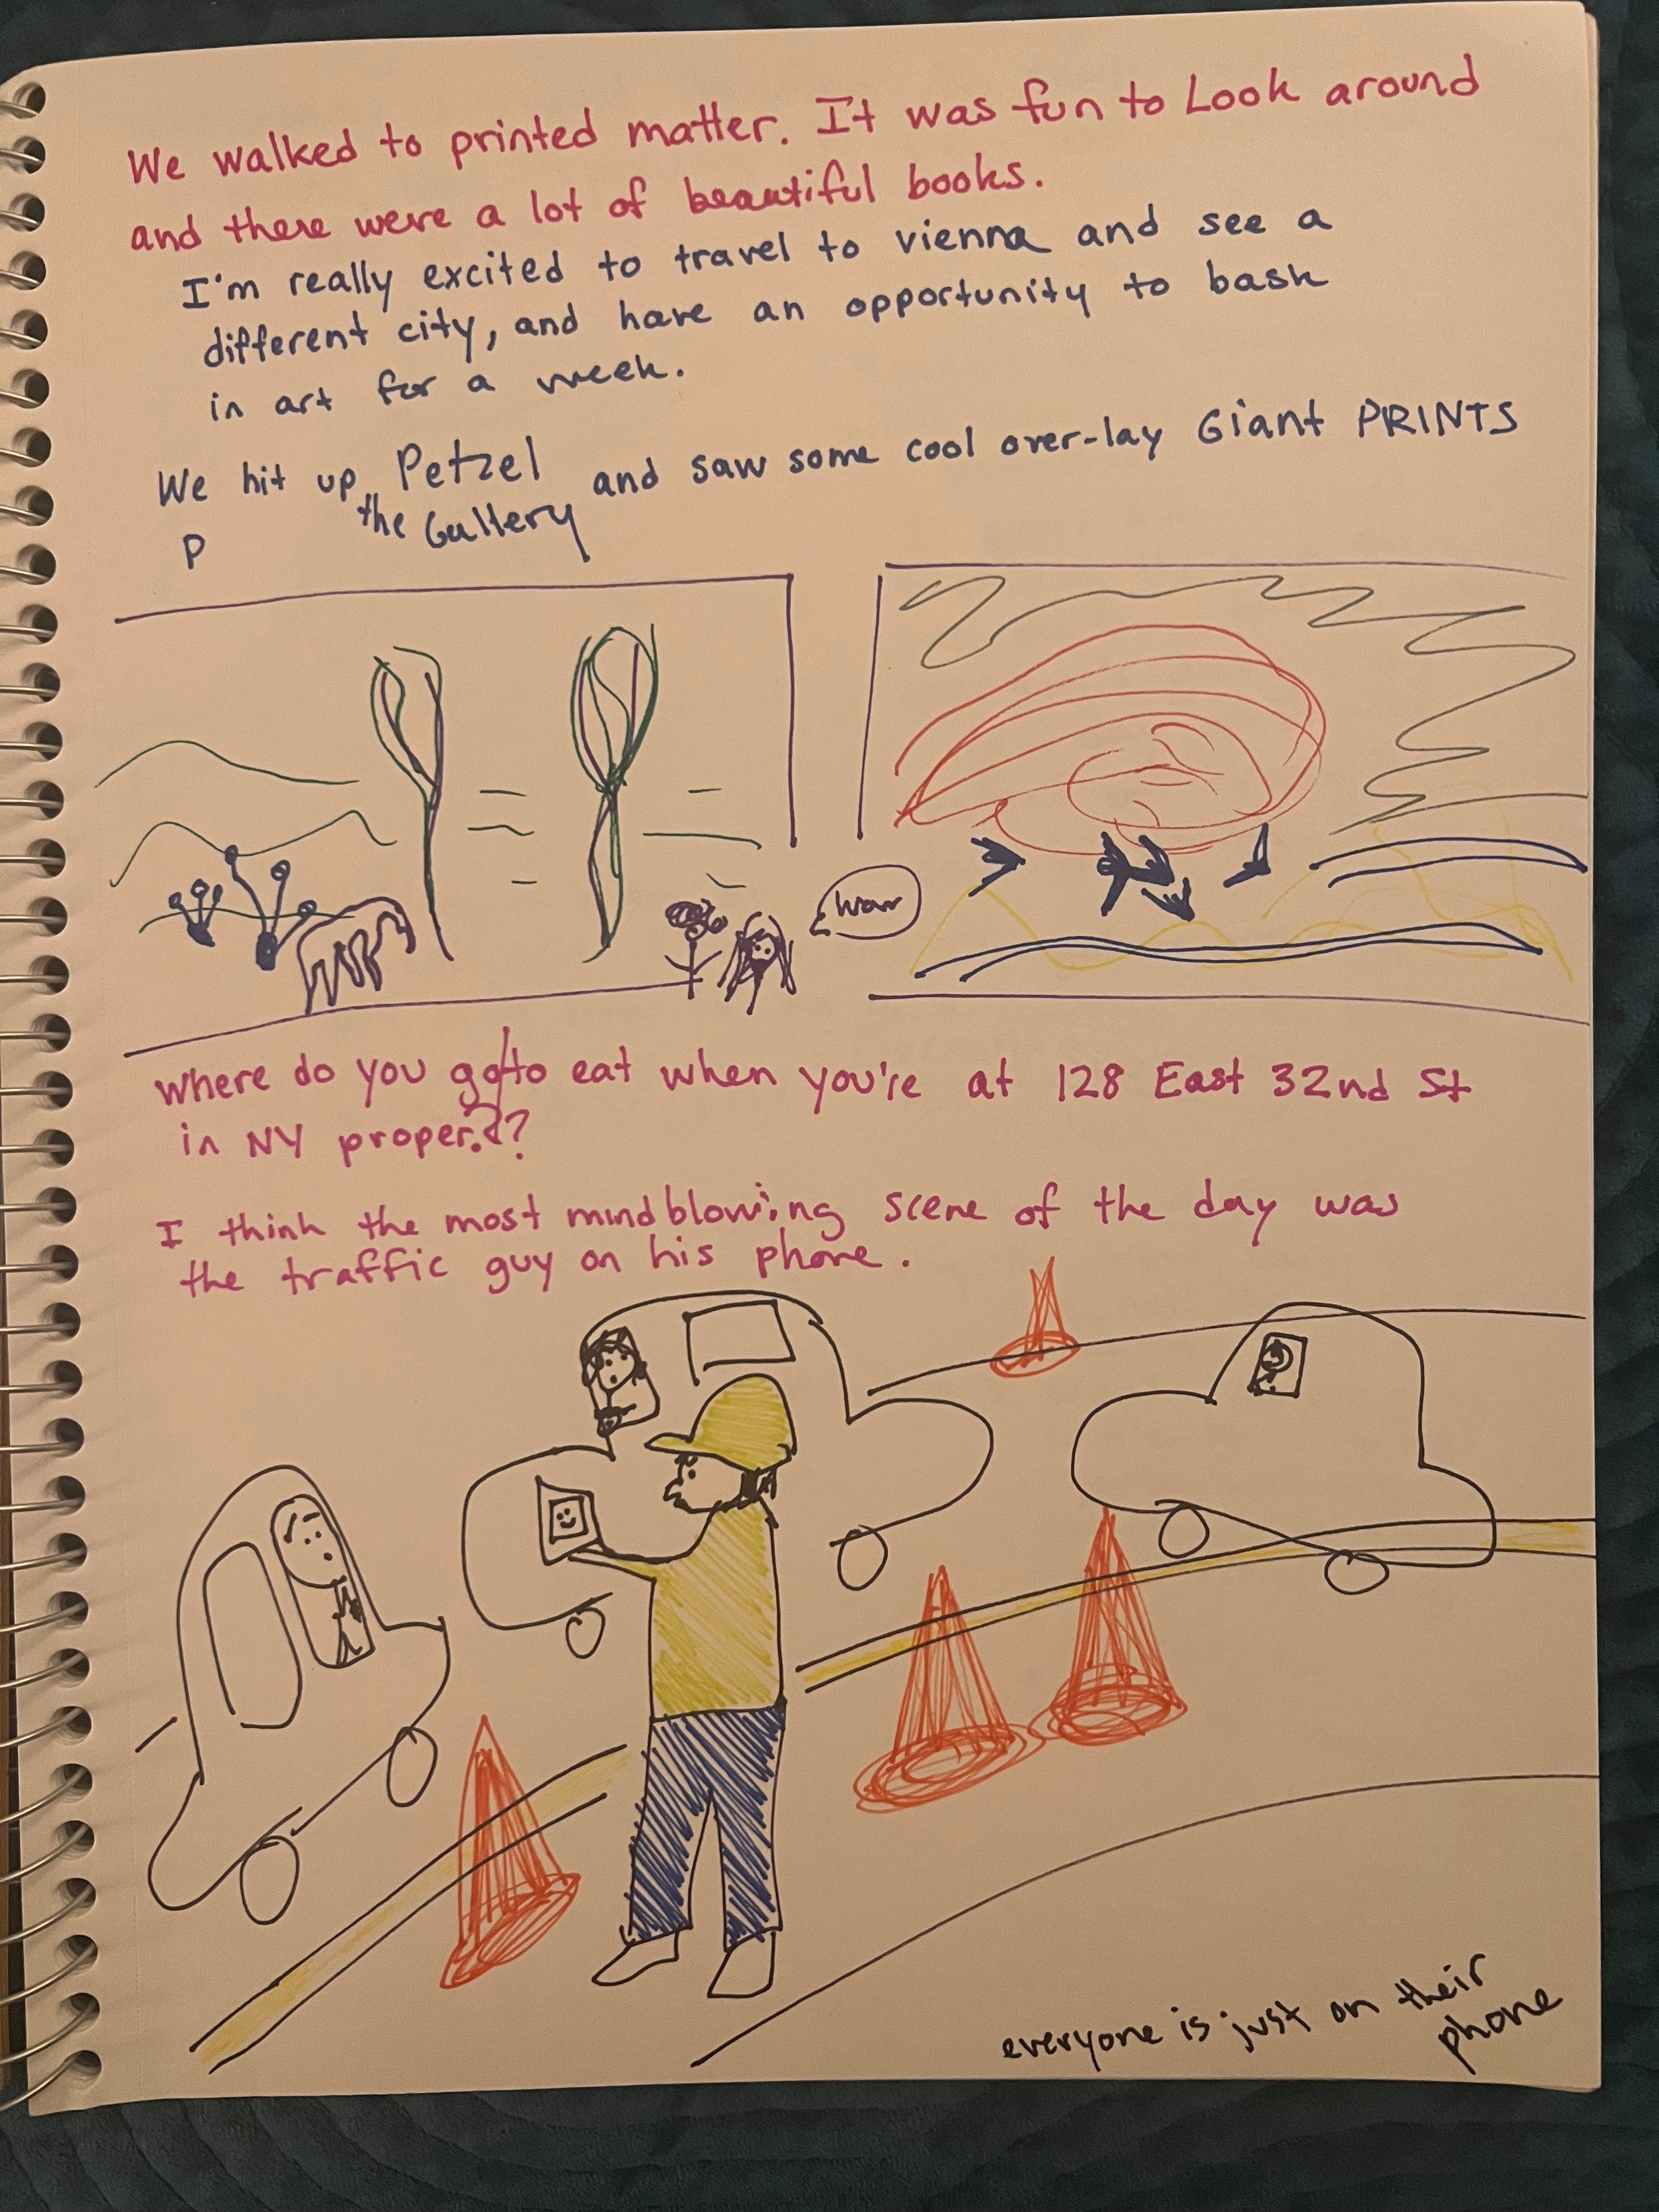 We walked to printed matter. It was fun to Look around
and there were a lot of beautiful books.
I'm really excited to travel to vienna and see a
different city, and have an opportunity to bask
in art for a week.
We hit up Petzel and saw some cool over-lay Giant PRINTS
the Gallery
P
wow
where do you go/to eat when you're at 128 East 32nd St
in NY proper.??
I think the most mindblowing scene of the day was
the traffic guy on his phone.
everyone is just on their
phone